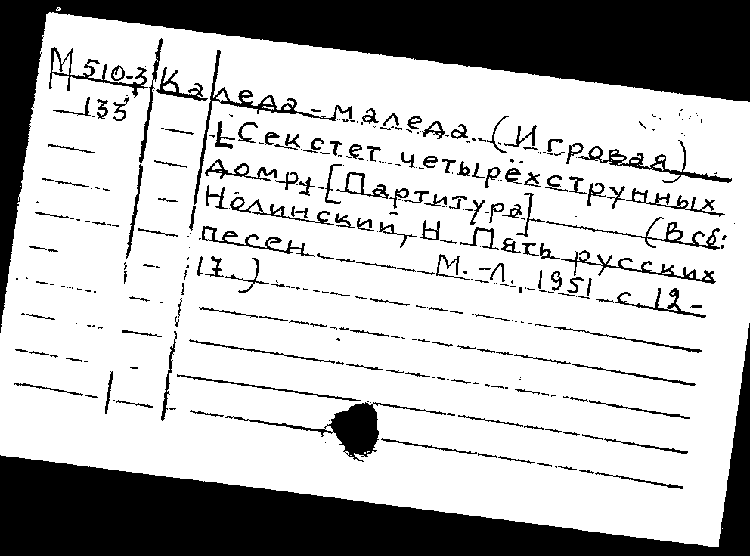 М 510-3
133
Каледа-маледа (Игровая)
[Секстет четырёхструнных
домр] [Партитура] (В сб:
Нолинский, Н. Пять русских
песен М.-Л., 1951 с. 12-
17.)